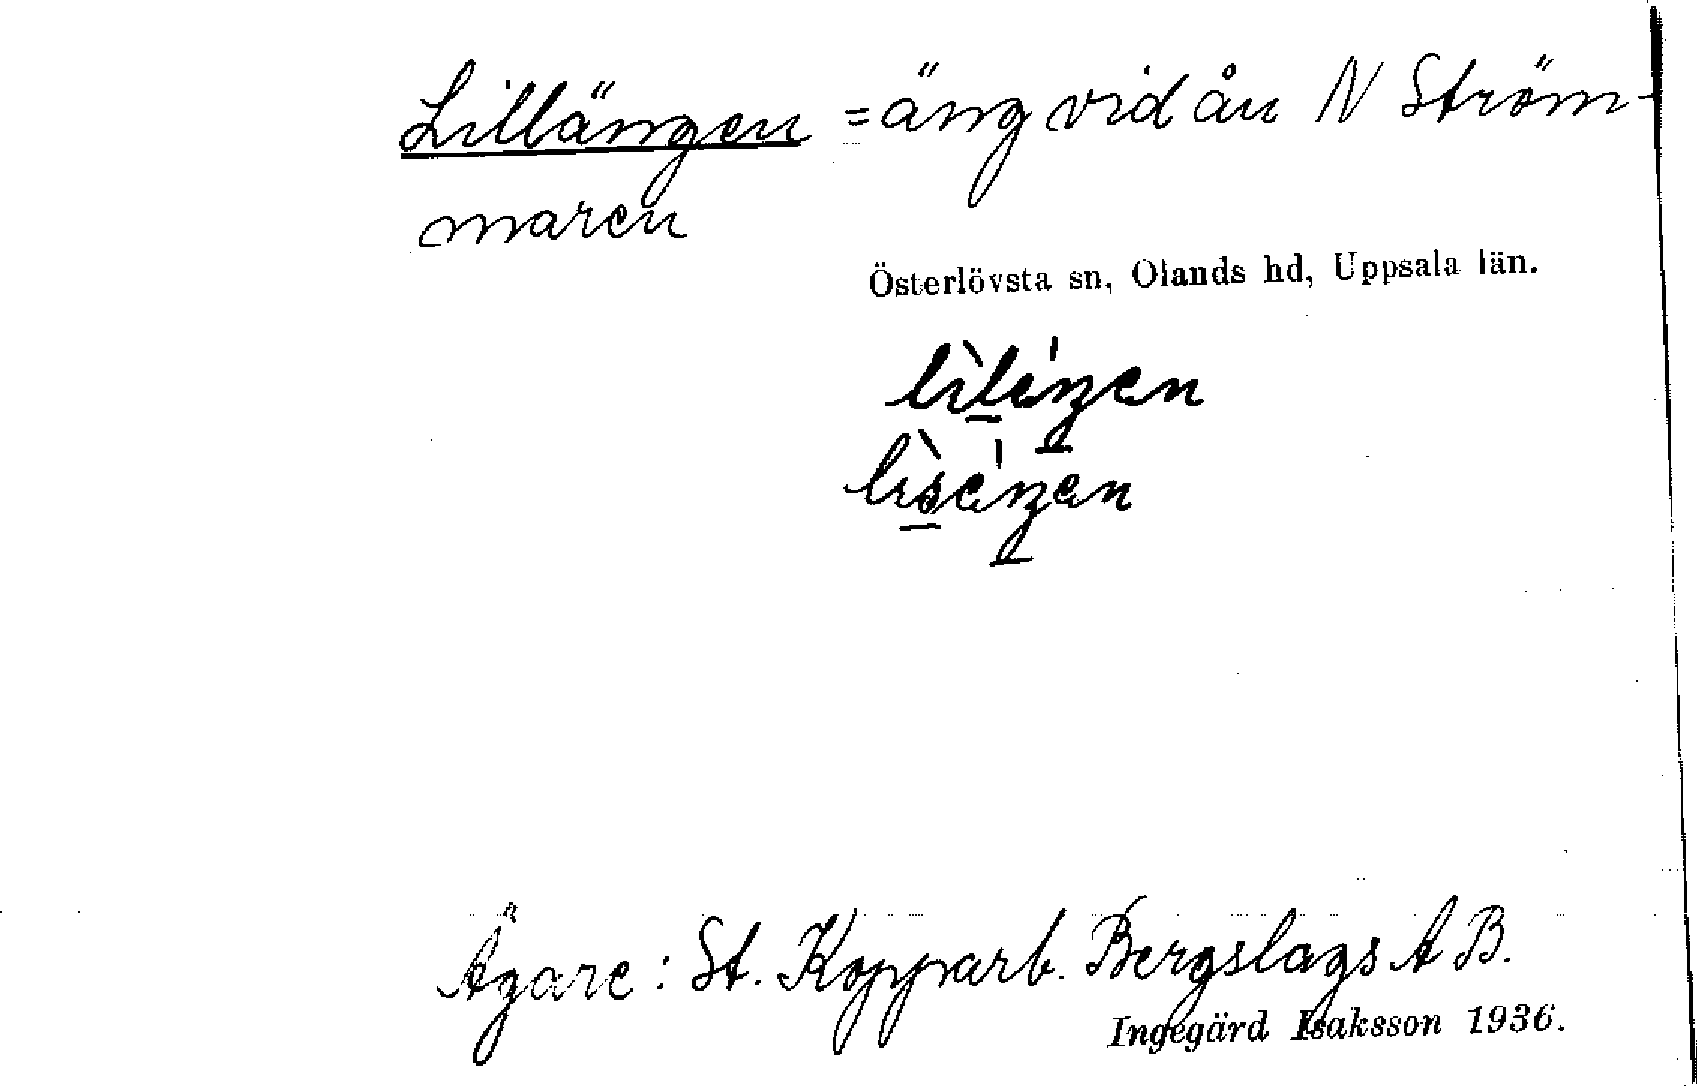 Lillängen = äng vid ån N Ström-
maren
Österlövsta sn, Olands hd, Uppsala län.
Ägare: St. Kopparb. Bergslags A B.
Ingegärd Isaksson 1936.